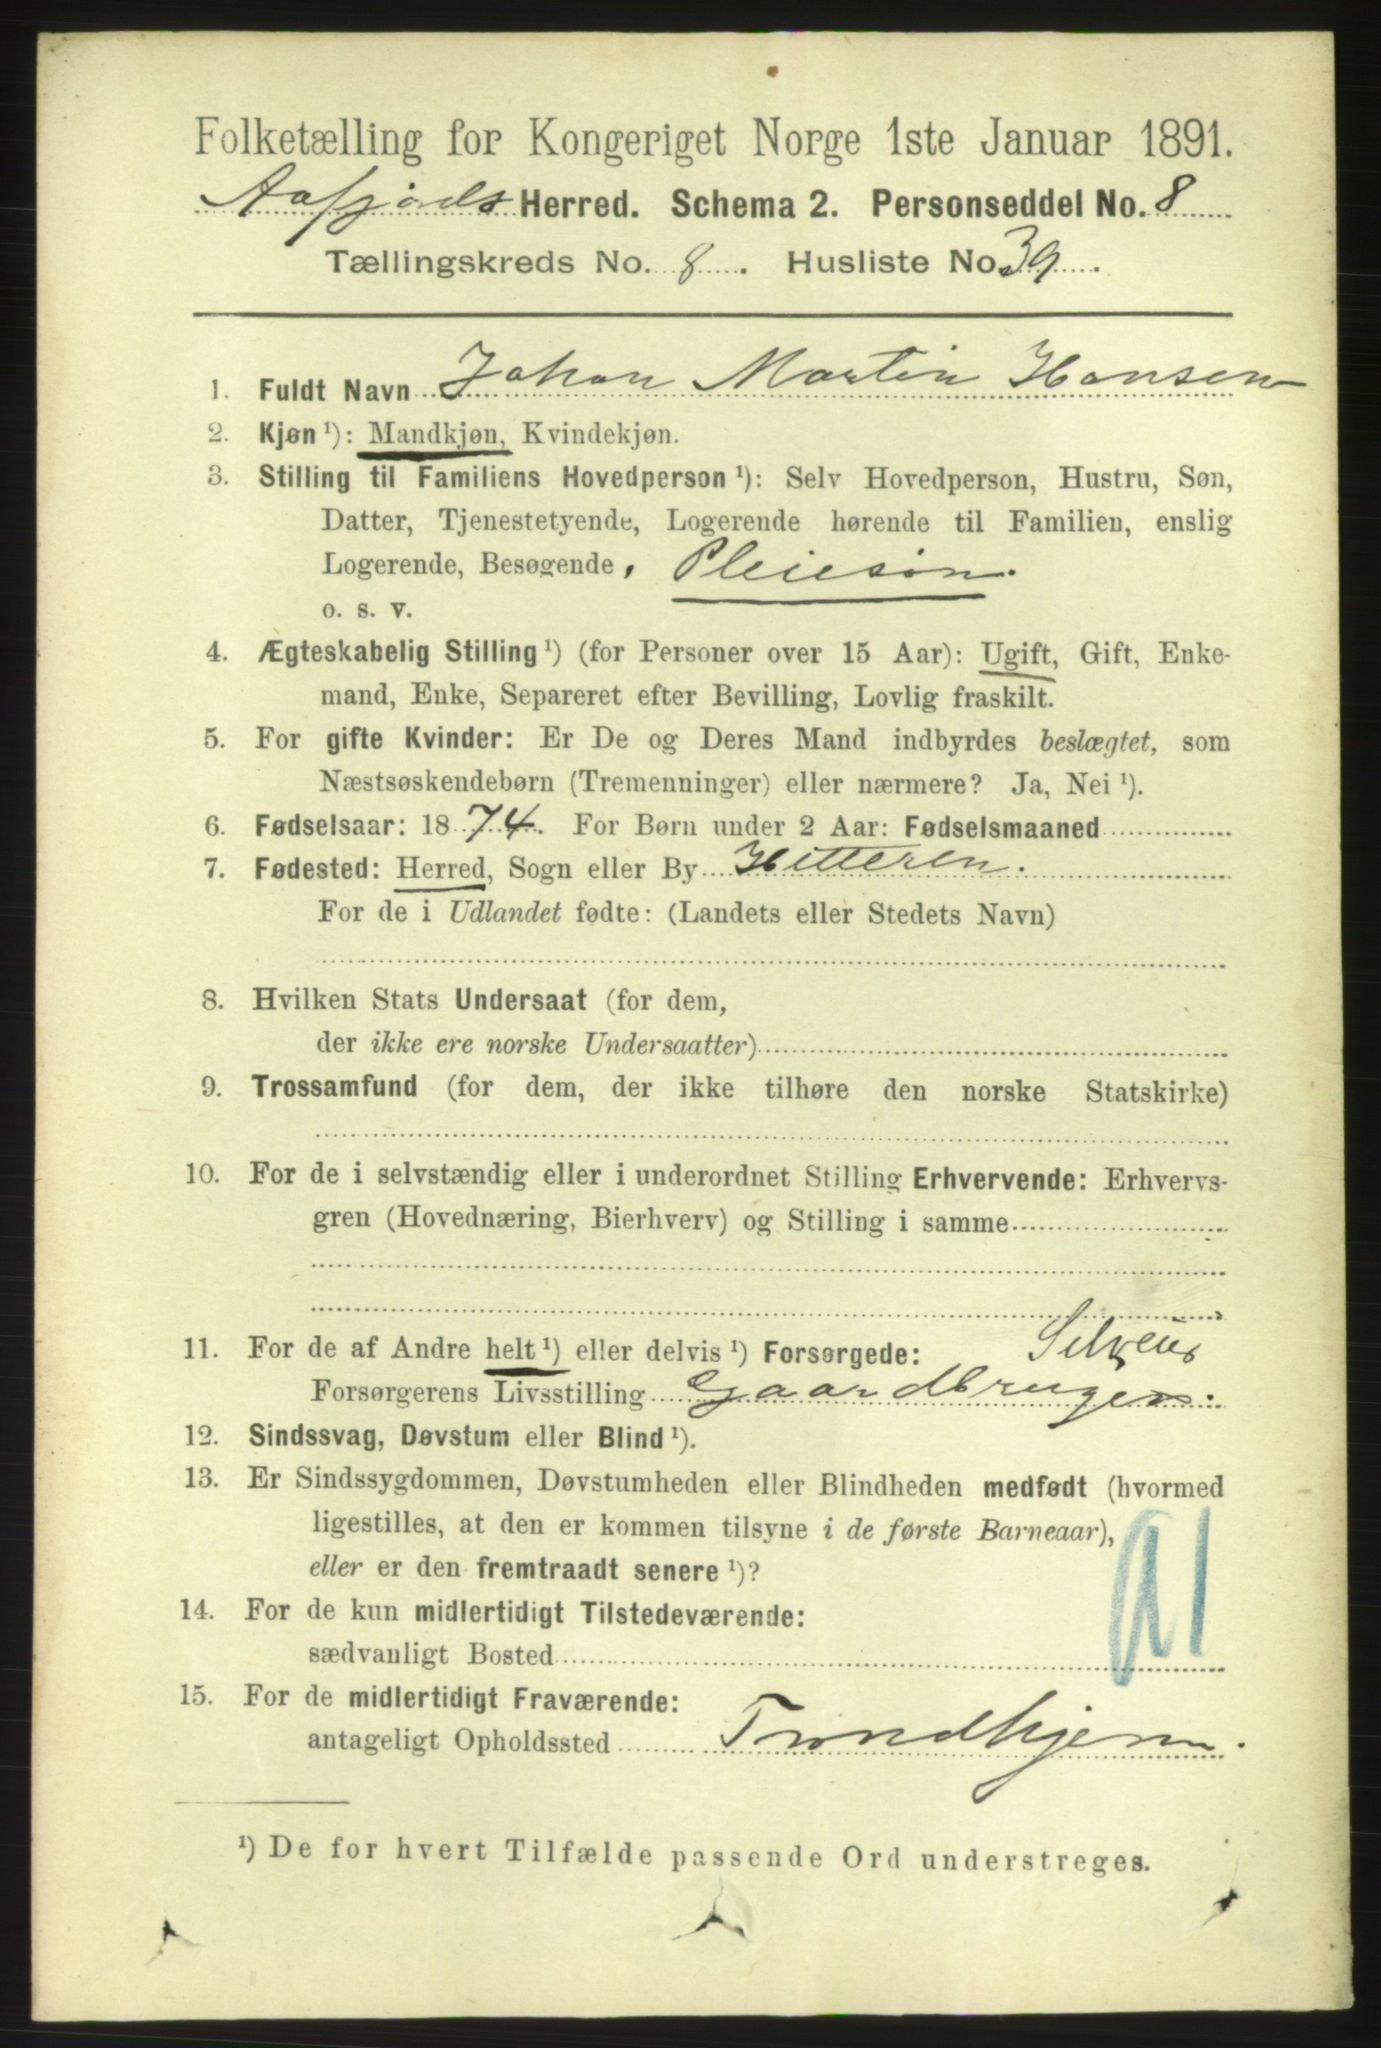 Folketælling for Kongeriget Norge 1ste Januar 1891.
Aafjords Herred. Schema 2. Personseddel No. 8
Tællingskreds No. 8. Husliste No. 39.
1. Fuldt Navn Johan Martin Hansen
2. Kjøn ¹): Mandkjøn, Kvindekjøn.
3. Stilling til Familiens Hovedperson ¹): Selv Hovedperson, Hustru, Søn,
Datter, Tjenestetyende, Logerende hørende til Familien, enslig
Logerende, Besøgende, Pleiesøn.
o. s. v.
4. Ægteskabelig Stilling ¹) (for Personer over 15 Aar): Ugift, Gift, Enke-
mand, Enke, Separeret efter Bevilling, Lovlig fraskilt.
5. For gifte Kvinder: Er De og Deres Mand indbyrdes beslægtet, som
Næstsøskendebørn (Tremenninger) eller nærmere? Ja, Nei ¹).
6. Fødselsaar: 1874. For Børn under 2 Aar: Fødselsmaaned
7. Fødested: Herred, Sogn eller By Hitteren.
For de i Udlandet fødte: (Landets eller Stedets Navn)
8. Hvilken Stats Undersaat (for dem,
der ikke ere norske Undersaatter)
9. Trossamfund (for dem, der ikke tilhøre den norske Statskirke)
10. For de i selvstændig eller i underordnet Stilling Erhvervende: Erhvervs-
gren (Hovednæring, Bierhverv) og Stilling i samme
11. For de af Andre helt ¹) eller delvis ¹) Forsørgede: Selveier
Forsørgerens Livsstilling Gaardbruger.
12. Sindssvag, Døvstum eller Blind ¹).
13. Er Sindssygdommen, Døvstumheden eller Blindheden medfødt (hvormed
ligestilles, at den er kommen tilsyne i de første Barneaar),
eller er den fremtraadt senere ¹)?
14. For de kun midlertidigt Tilstedeværende:
sædvanligt Bosted
15. For de midlertidigt Fraværende:
antageligt Opholdssted Trondhjem.
¹) De for hvert Tilfælde passende Ord understreges.